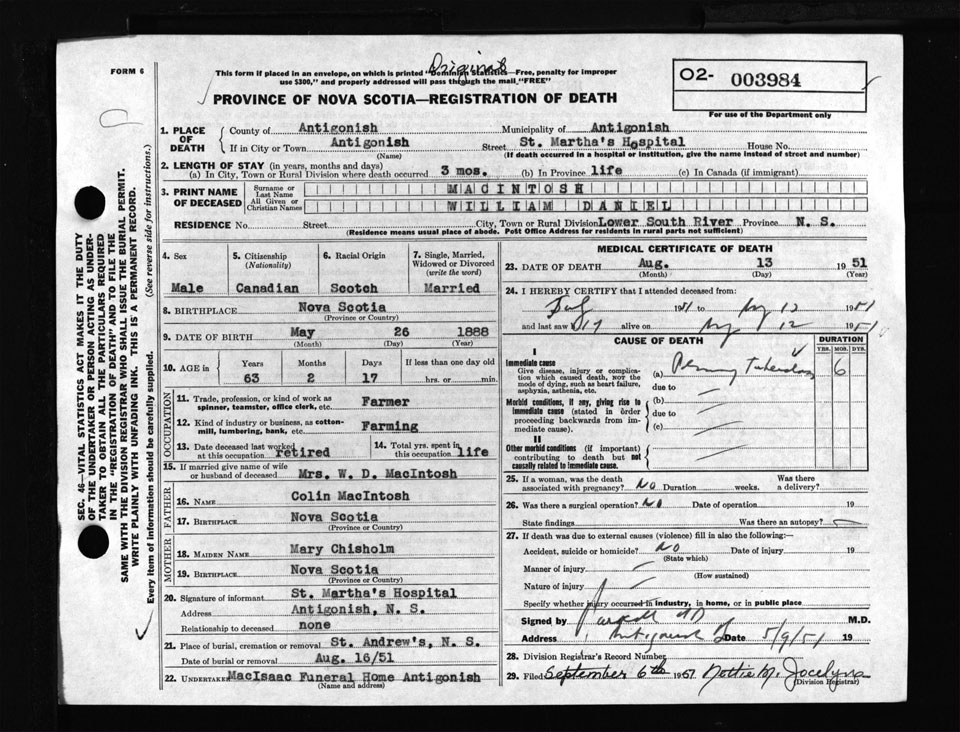 FORM 6
Original
This form if placed in an envelope, on which is printed "Dominion Statistics—Free, penalty for improper
use $300," and properly addressed will pass through the mail "FREE"
O2- 003984
For use of the Department only
PROVINCE OF NOVA SCOTIA—REGISTRATION OF DEATH
SEC. 46—VITAL STATISTICS ACT MAKES IT THE DUTY
OF THE UNDERTAKER OR PERSON ACTING AS UNDER-
TAKER TO OBTAIN ALL THE PARTICULARS REQUIRED
IN THE "REGISTRATION OF DEATH" AND TO FILE THE
SAME WITH THE DIVISION REGISTRAR WHO SHALL ISSUE THE BURIAL PERMIT.
WRITE PLAINLY WITH UNFADING INK. THIS IS A PERMANENT RECORD.
Every item of information should be carefully supplied. (See reverse side for instructions.)
1. PLACE OF DEATH
County of Antigonish Municipality of Antigonish
If in City or Town Antigonish Street St. Martha's Hospital House No.
(Name) (If death occurred in a hospital or institution, give the name instead of street and number)
2. LENGTH OF STAY (in years, months and days)
(a) In City, Town or Rural Division where death occurred 3 mos. (b) In Province life (c) In Canada (if immigrant)
3. PRINT NAME OF DECEASED
Surname or Last Name MACINTOSH
All Given or Christian Names WILLIAM DANIEL
RESIDENCE No. Street City, Town or Rural Division Lower South River Province N. S.
(Residence means usual place of abode. Post Office Address for residents in rural parts not sufficient)
4. Sex 5. Citizenship (Nationality) 6. Racial Origin 7. Single, Married, Widowed or Divorced (write the word)
Male Canadian Scotch Married
8. BIRTHPLACE Nova Scotia
(Province or Country)
9. DATE OF BIRTH May 26 1888
(Month) (Day) (Year)
10. AGE in Years Months Days If less than one day old
63 2 17 hrs. or min.
OCCUPATION
11. Trade, profession, or kind of work as
spinner, teamster, office clerk, etc. Farmer
12. Kind of industry or business, as cotton-
mill, lumbering, bank, etc. Farming
13. Date deceased last worked
at this occupation retired
14. Total yrs. spent in
this occupation life
15. If married give name of wife
or husband of deceased Mrs. W. D. MacIntosh
FATHER
16. NAME Colin MacIntosh
17. BIRTHPLACE Nova Scotia
(Province or Country)
MOTHER
18. MAIDEN NAME Mary Chisholm
19. BIRTHPLACE Nova Scotia
(Province or Country)
20. Signature of informant St. Martha's Hospital
Address Antigonish, N. S.
Relationship to deceased none
21. Place of burial, cremation or removal St. Andrew's, N. S.
Date of burial or removal Aug. 16/51
22. UNDERTAKER MacIsaac Funeral Home Antigonish
(Name and address)
MEDICAL CERTIFICATE OF DEATH
23. DATE OF DEATH Aug. 13 1951
(Month) (Day) (Year)
24. I HEREBY CERTIFY that I attended deceased from
1951 to Aug 12 1951
and last saw alive on Aug 12 1951
CAUSE OF DEATH
DURATION
YRS. MOS. DYS.
I
Immediate cause
Give disease, injury or complica-
tion which caused death, NOT the
mode of dying, such as heart failure,
asphyxia, asthenia, etc.
(a) 6
due to
Morbid conditions, if any, giving rise to
immediate cause (stated in order
proceeding backwards from im-
mediate cause).
(b)
due to
(c)
II
Other morbid conditions (if important)
contributing to death but not
causally related to immediate cause.
25. If a woman, was the death
associated with pregnancy? NO Duration weeks. Was there
a delivery?
26. Was there a surgical operation? NO Date of operation 19
State findings Was there an autopsy?
27. If death was due to external causes (violence) fill in also the following:—
Accident, suicide or homicide? NO Date of injury 19
(State which)
Manner of injury
(How sustained)
Nature of injury
Specify whether injury occurred in industry, in home, or in public place
Signed by M.D.
Address Antigonish Date 5/9/51 19
28. Division Registrar's Record Number
29. Filed September 6th 1951 Nottie M. Jocelyn
(Division Registrar)